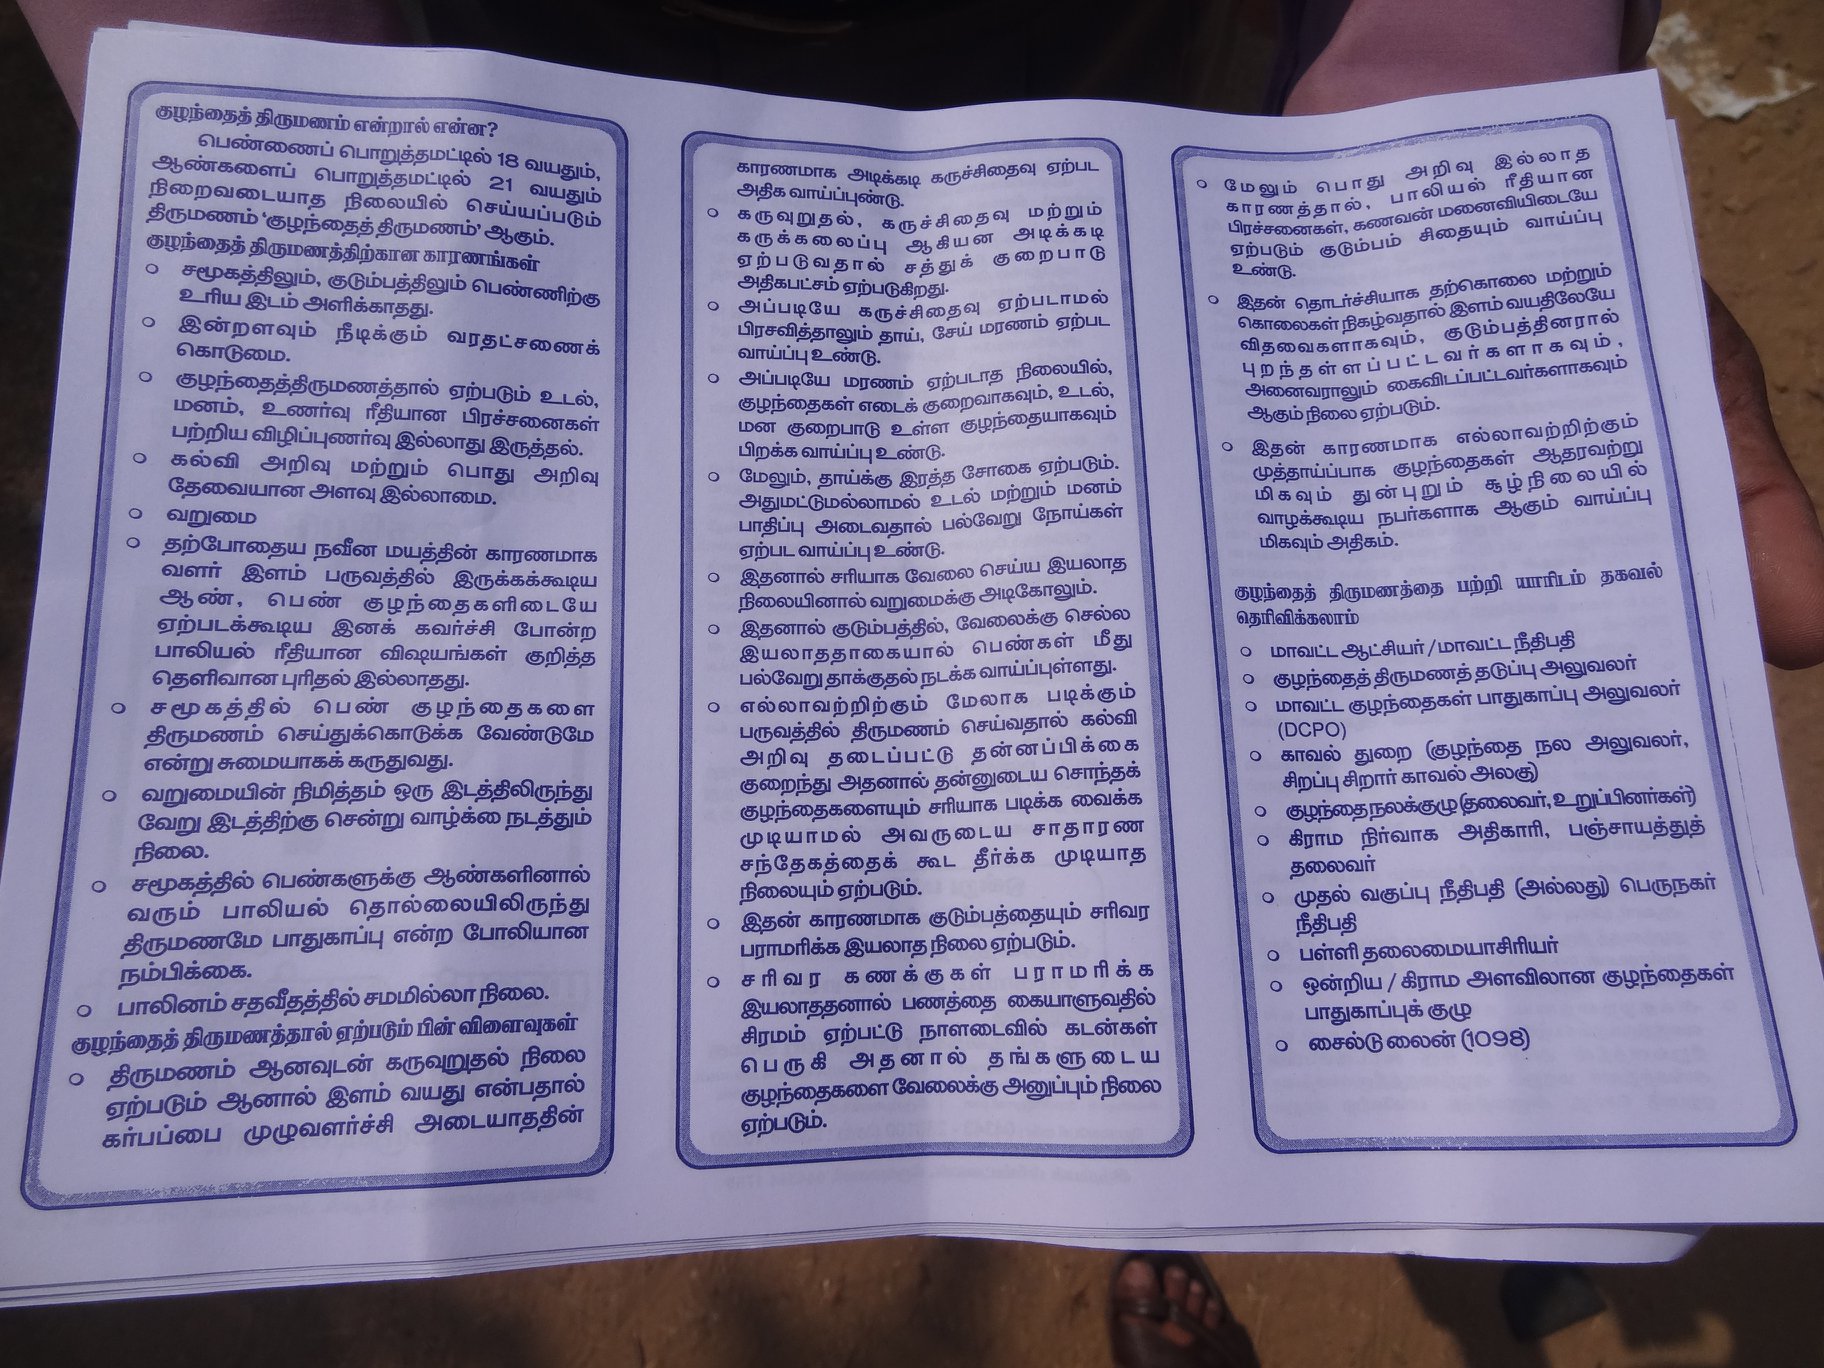 குழந்தைத் திருமணம் என்றால் என்ன?
பெண்ணைப் பொறுத்தமட்டில் 18 வயதும்,
ஆண்களைப் பொறுத்தமட்டில் 21 வயதும்
நிறைவடையாத நிலையில் செய்யப்படும்
திருமணம் ‘குழந்தைத் திருமணம்’ ஆகும்.
குழந்தைத் திருமணத்திற்கான காரணங்கள்
○ சமூகத்திலும், குடும்பத்திலும் பெண்ணிற்கு
உரிய இடம் அளிக்காதது.
○ இன்றளவும் நீடிக்கும் வரதட்சணைக்
கொடுமை.
○ குழந்தைத்திருமணத்தால் ஏற்படும் உடல்,
மனம், உணர்வு ரீதியான பிரச்சனைகள்
பற்றிய விழிப்புணர்வு இல்லாது இருத்தல்.
○ கல்வி அறிவு மற்றும் பொது அறிவு
தேவையான அளவு இல்லாமை.
○ வறுமை
○ தற்போதைய நவீன மயத்தின் காரணமாக
வளர் இளம் பருவத்தில் இருக்கக்கூடிய
ஆண், பெண் குழந்தைகளிடையே
ஏற்படக்கூடிய இனக் கவர்ச்சி போன்ற
பாலியல் ரீதியான விஷயங்கள் குறித்த
தெளிவான புரிதல் இல்லாதது.
○ சமூகத்தில் பெண் குழந்தைகளை
திருமணம் செய்துக்கொடுக்க வேண்டுமே
என்று சுமையாகக் கருதுவது.
○ வறுமையின் நிமித்தம் ஒரு இடத்திலிருந்து
வேறு இடத்திற்கு சென்று வாழ்க்கை நடத்தும்
நிலை.
○ சமூகத்தில் பெண்களுக்கு ஆண்களினால்
வரும் பாலியல் தொல்லையிலிருந்து
திருமணமே பாதுகாப்பு என்ற போலியான
நம்பிக்கை.
○ பாலினம் சதவீதத்தில் சமமில்லா நிலை.
குழந்தைத் திருமணத்தால் ஏற்படும் பின் விளைவுகள்
○ திருமணம் ஆனவுடன் கருவுறுதல் நிலை
ஏற்படும் ஆனால் இளம் வயது என்பதால்
கர்பப்பை முழுவளர்ச்சி அடையாததின்
காரணமாக அடிக்கடி கருச்சிதைவு ஏற்பட
அதிக வாய்ப்புண்டு.
○ கருவுறுதல், கருச்சிதைவு மற்றும்
கருக்கலைப்பு ஆகியன அடிக்கடி
ஏற்படுவதால் சத்துக் குறைபாடு
அதிகபட்சம் ஏற்படுகிறது.
○ அப்படியே கருச்சிதைவு ஏற்படாமல்
பிரசவித்தாலும் தாய், சேய் மரணம் ஏற்பட
வாய்ப்பு உண்டு.
○ அப்படியே மரணம் ஏற்படாத நிலையில்,
குழந்தைகள் எடைக் குறைவாகவும், உடல்,
மன குறைபாடு உள்ள குழந்தையாகவும்
பிறக்க வாய்ப்பு உண்டு.
○ மேலும், தாய்க்கு இரத்த சோகை ஏற்படும்.
அதுமட்டுமல்லாமல் உடல் மற்றும் மனம்
பாதிப்பு அடைவதால் பல்வேறு நோய்கள்
ஏற்பட வாய்ப்பு உண்டு.
○ இதனால் சரியாக வேலை செய்ய இயலாத
நிலையினால் வறுமைக்கு அடிகோலும்.
○ இதனால் குடும்பத்தில், வேலைக்கு செல்ல
இயலாததாகையால் பெண்கள் மீது
பல்வேறு தாக்குதல் நடக்க வாய்ப்புள்ளது.
○ எல்லாவற்றிற்கும் மேலாக படிக்கும்
பருவத்தில் திருமணம் செய்வதால் கல்வி
அறிவு தடைப்பட்டு தன்னப்பிக்கை
குறைந்து அதனால் தன்னுடைய சொந்தக்
குழந்தைகளையும் சரியாக படிக்க வைக்க
முடியாமல் அவருடைய சாதாரண
சந்தேகத்தைக் கூட தீர்க்க முடியாத
நிலையும் ஏற்படும்.
○ இதன் காரணமாக குடும்பத்தையும் சரிவர
பராமரிக்க இயலாத நிலை ஏற்படும்.
○ சரிவர கணக்குகள் பராமரிக்க
இயலாததனால் பணத்தை கையாளுவதில்
சிரமம் ஏற்பட்டு நாளடைவில் கடன்கள்
பெருகி அதனால் தங்களுடைய
குழந்தைகளை வேலைக்கு அனுப்பும் நிலை
ஏற்படும்.
○ மேலும் பொது அறிவு இல்லாத
காரணத்தால், பாலியல் ரீதியான
பிரச்சனைகள், கணவன் மனைவியிடையே
ஏற்படும் குடும்பம் சிதையும் வாய்ப்பு
உண்டு.
○ இதன் தொடர்ச்சியாக தற்கொலை மற்றும்
கொலைகள் நிகழ்வதால் இளம் வயதிலேயே
விதவைகளாகவும், குடும்பத்தினரால்
புறந்தள்ளப்பட்டவர்களாகவும்,
அனைவராலும் கைவிடப்பட்டவர்களாகவும்
ஆகும் நிலை ஏற்படும்.
○ இதன் காரணமாக எல்லாவற்றிற்கும்
முத்தாய்ப்பாக குழந்தைகள் ஆதரவற்று
மிகவும் துன்புறும் சூழ்நிலையில்
வாழக்கூடிய நபர்களாக ஆகும் வாய்ப்பு
மிகவும் அதிகம்.
குழந்தைத் திருமணத்தை பற்றி யாரிடம் தகவல்
தெரிவிக்கலாம்
○ மாவட்ட ஆட்சியர் / மாவட்ட நீதிபதி
○ குழந்தைத் திருமணத் தடுப்பு அலுவலர்
○ மாவட்ட குழந்தைகள் பாதுகாப்பு அலுவலர்
(DCPO)
○ காவல் துறை (குழந்தை நல அலுவலர்,
சிறப்பு சிறார் காவல் அலகு)
○ குழந்தை நலக்குழு (தலைவர், உறுப்பினர்கள்)
○ கிராம நிர்வாக அதிகாரி, பஞ்சாயத்துத்
தலைவர்
○ முதல் வகுப்பு நீதிபதி (அல்லது) பெருநகர்
நீதிபதி
○ பள்ளி தலைமையாசிரியர்
○ ஒன்றிய / கிராம அளவிலான குழந்தைகள்
பாதுகாப்புக் குழு
○ சைல்டு லைன் (1098)